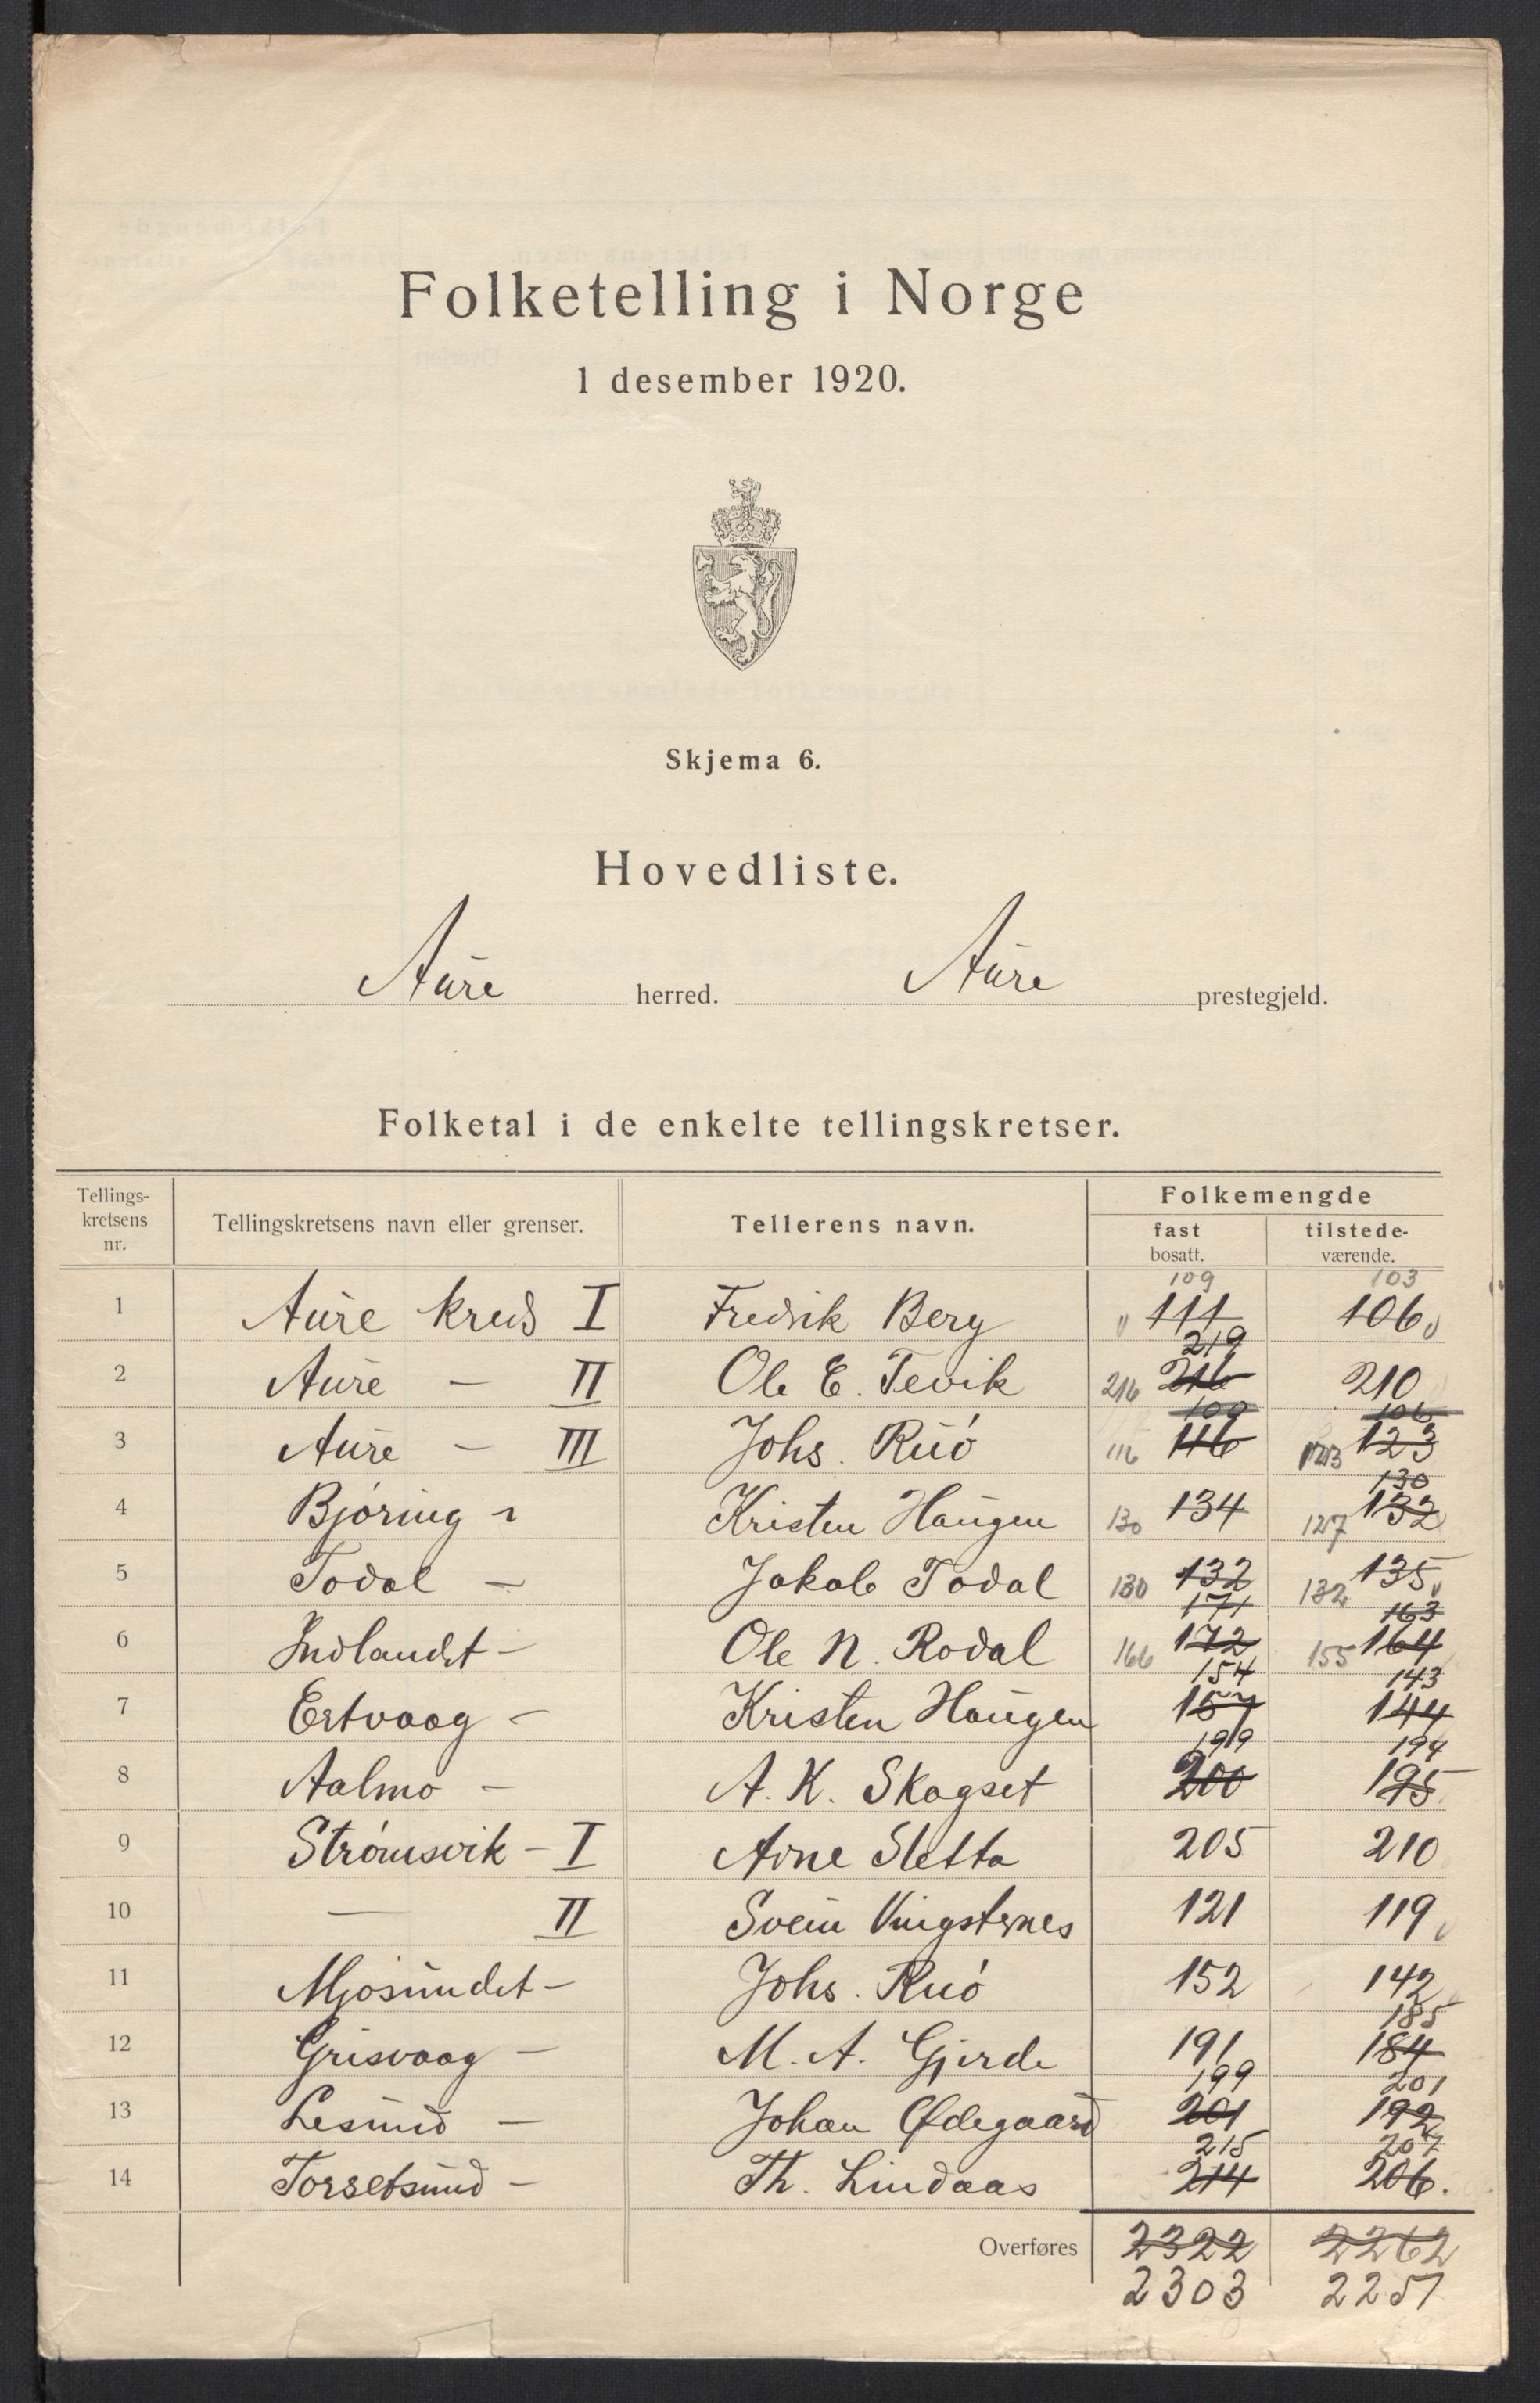 Folketelling i Norge
1 desember 1920.
Skjema 6.
Hovedliste.
Aure herred. Aure prestegjeld.
Folketal i de enkelte tellingskretser.
Tellings-
kretsens
nr.
Tellingskretsens navn eller grenser.
Tellerens navn.
Folkemengde
fast
bosatt.
tilstede-
værende.
109 103
1 Aure kreds I Fredrik Berg 111 106
219
2 Aure — II Ole E. Tevik 216 216 210
109 106
3 Aure — III Johs. Ruö 116 116 123 123
130
4 Björing - Kristen Haugen 130 134 127 132
5 Todal — Jakob Todal 130 132 132 135
171 163
6 Indlandet - Ole N. Rodal 166 172 155 164
154 143
7 Ertvaag - Kristen Haugen 157 144
199 194
8 Aalmo - A. K. Skogset 200 195
9 Strömsvik - I Arne Sletta 205 210
10 — II Svein Vingsternes 121 119
11 Mjosundet - Johs. Ruö 152 142
185
12 Grisvaag - M. A. Gjerde 191 184
199 201
13 Lesund - Johan Ødegaard 201 192
215 207
14 Torsetsund - Th. Lindaas 214 206.
Overføres 2322 2262
2303 2257